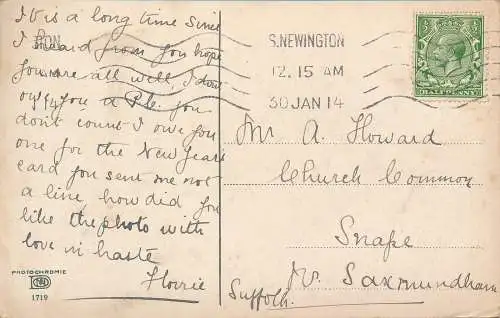 It is a long time since
I heard from you hope
you are all well, I don't
owe you a P.C. you
don't count I owe you
one for the New Years
card you sent me not
a line, how did you
like the photo with
love in haste
Florrie
PHOTOCHROMIE
1719
S. NEWINGTON
12. 15 AM
30 JAN 14
HALFPENNY
Mr A. Howard
Church Common
Snape
Nr. Saxmundham
Suffolk.